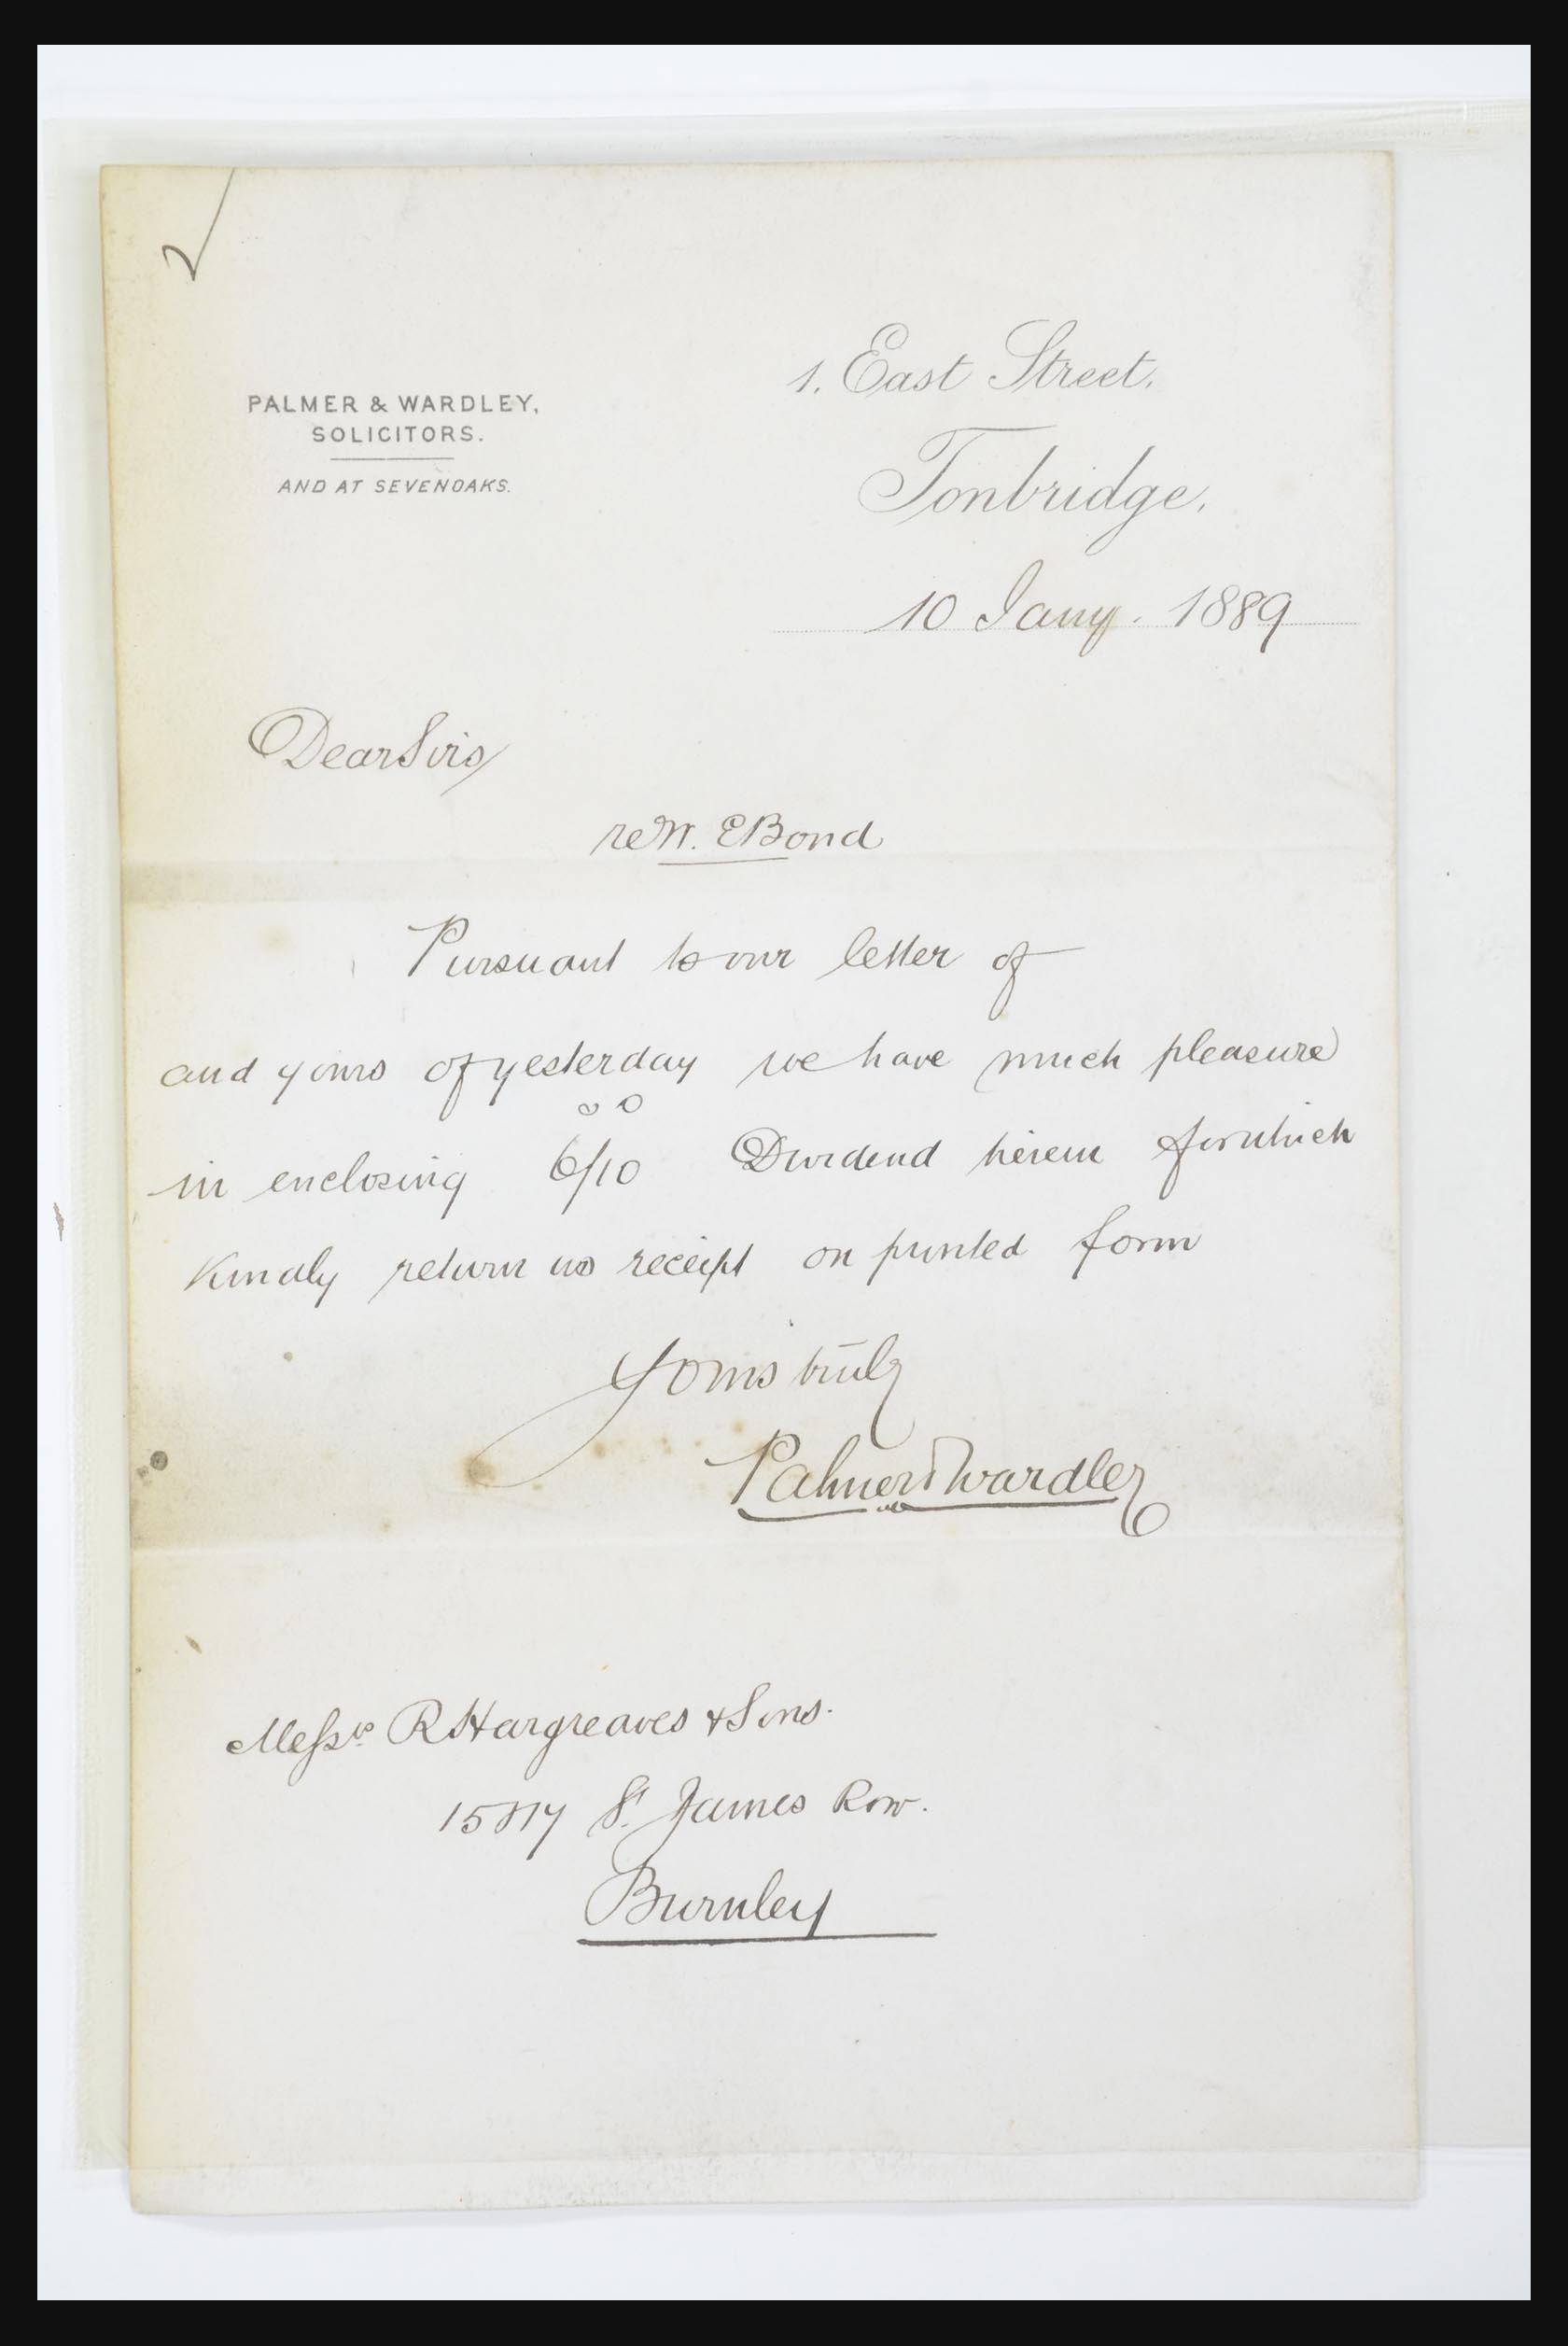 PALMER & WARDLEY,
SOLICITORS.
AND AT SEVENOAKS.
1. East Street.
Tonbridge.
10 Jany. 1889
Dear Sirs/
re W. E Bond
Pursuant to our letter of
and yours of yesterday we have much pleasure
in enclosing 6/10 Dividend herein for which
Kindly return us receipt on printed form
Yours truly
Palmer & Wardley
Messrs. R Hargreaves & Sons.
15 & 17 St. James Row.
Burnley